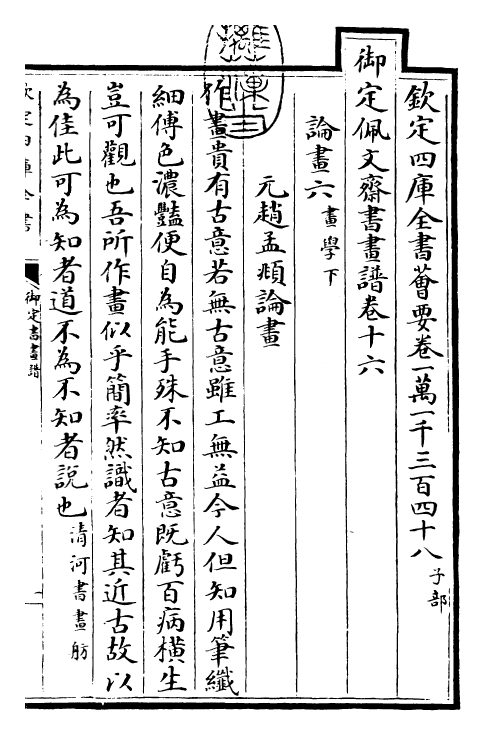 欽定四庫全書薈要卷一萬一千三百四十八 子部
御定佩文齋書畫譜卷十六
論畫六 畫學下
元趙孟頫論畫
作畫貴有古意若無古意雖工無益今人但知用筆纖
細傅色濃豔便自為能手殊不知古意既虧百病橫生
豈可觀也吾所作畫似乎簡率然識者知其近古故以
為佳此可為知者道不為不知者說也 清河書畫舫
欽定四庫全書
御定書畫譜